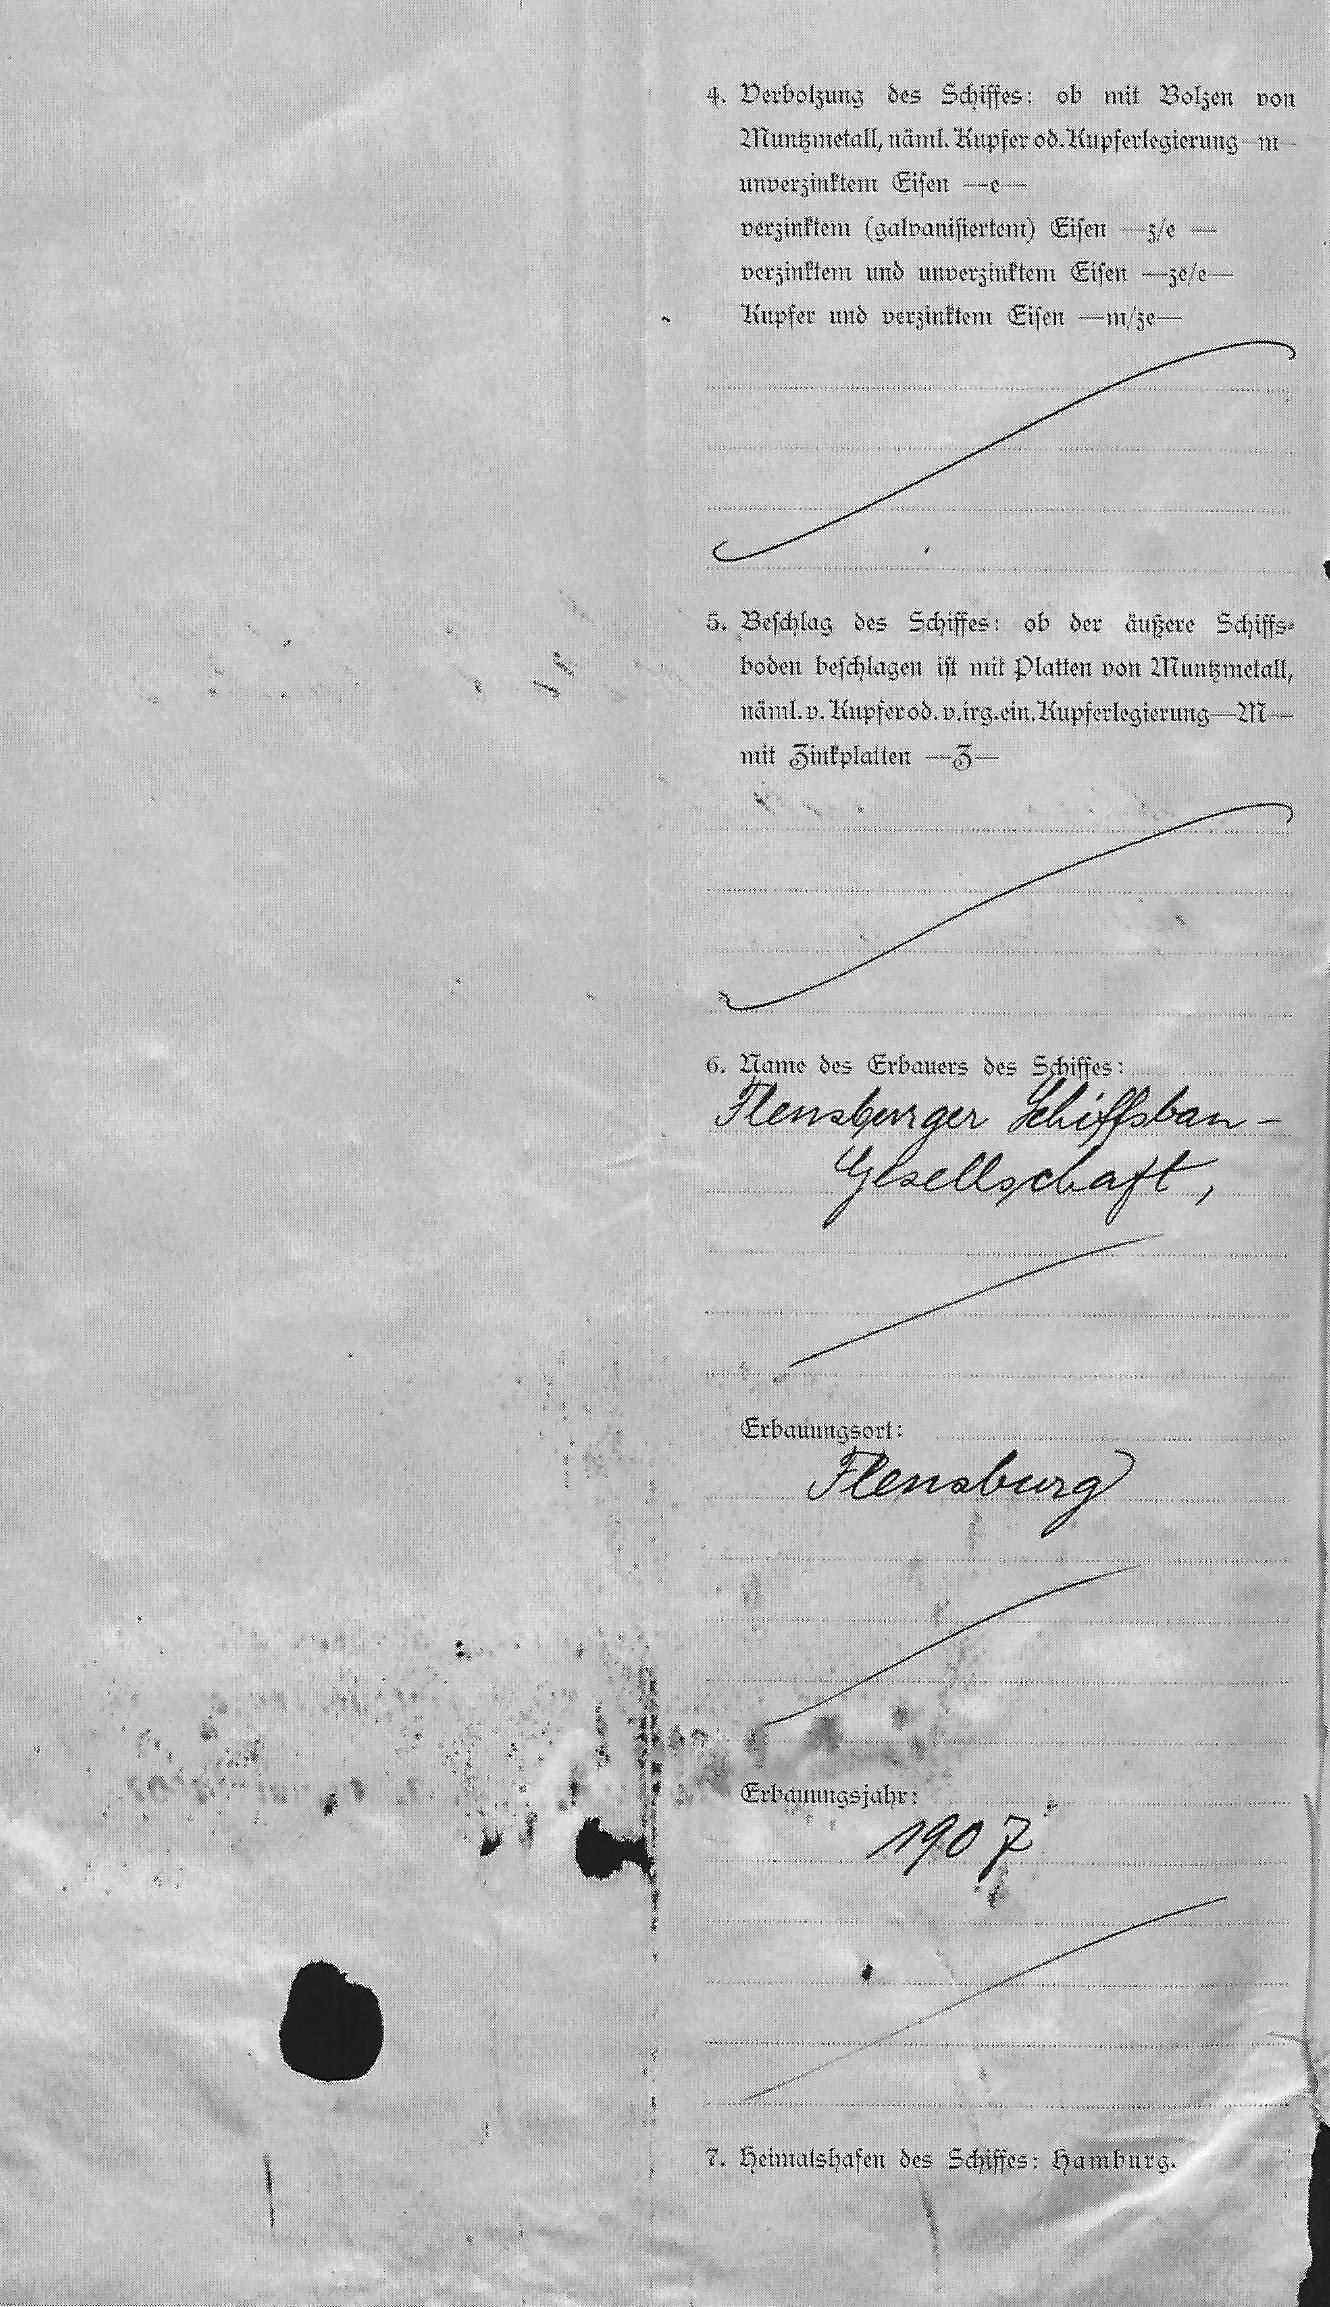 4. Verbolzung des Schiffes: ob mit Bolzen von
Muntzmetall, näml. Kupfer od. Kupferlegierung —m—
unverzinktem Eisen —e—
verzinktem (galvanisiertem) Eisen —z/e —
verzinktem und unverzinktem Eisen —ze/e—
Kupfer und verzinktem Eisen —m/ze—
5. Beschlag des Schiffes: ob der äußere Schiffs-
boden beschlagen ist mit Platten von Muntzmetall,
näml. v. Kupfer od. v. irg. ein. Kupferlegierung—M—
mit Zinkplatten —Z—
6. Name des Erbauers des Schiffes:
Flensburger Schiffsbau-
Gesellschaft,
Erbauungsort:
Flensburg
Erbauungsjahr:
1907
7. Heimatshafen des Schiffes: Hamburg.